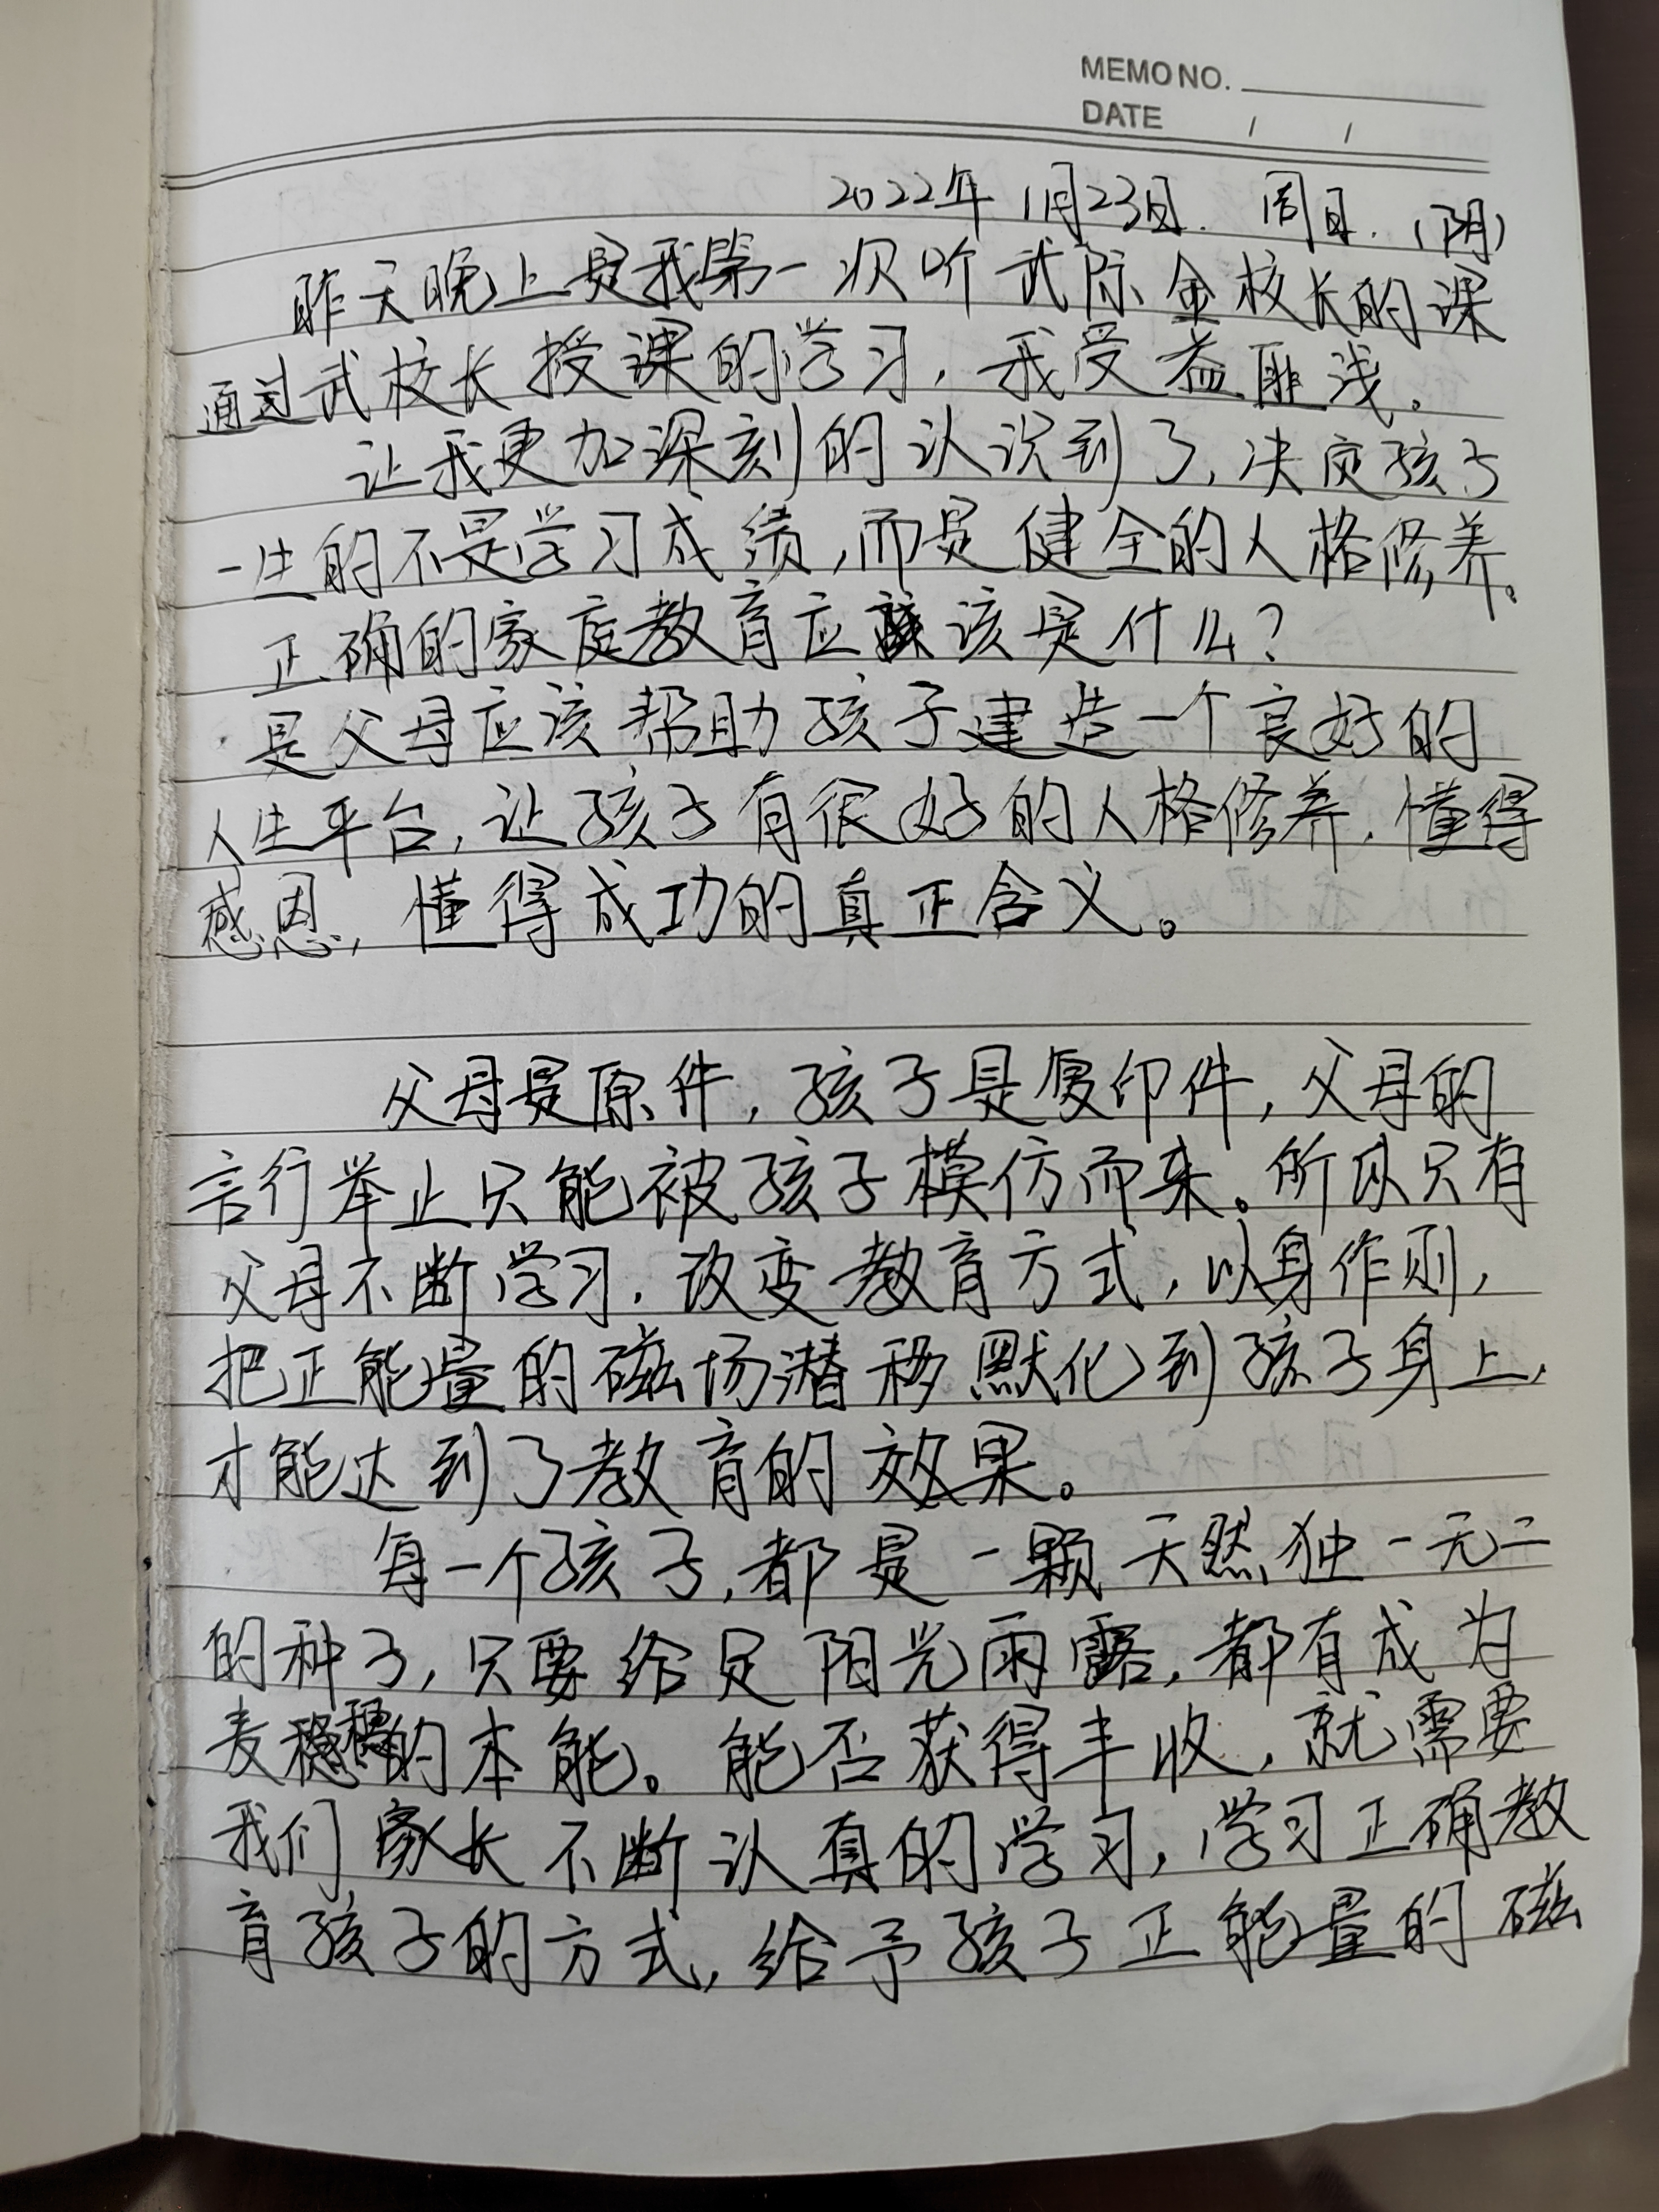 MEMO NO.
DATE / /
2022年1月23日. 周日.(阴)
昨天晚上是我第一次听武际金校长的课
通过武校长授课的学习,我受益匪浅。
让我更加深刻的认识到了,决定孩子
一生的不是学习成绩,而是健全的人格修养。
正确的家庭教育应该是什么?
是父母应该帮助孩子建造一个良好的
人生平台,让孩子有很好的人格修养,懂得
感恩,懂得成功的真正含义。
父母是原件,孩子是复印件,父母的
言行举止只能被孩子模仿而来。所以只有
父母不断学习,改变教育方式,以身作则,
把正能量的磁场潜移默化到孩子身上,
才能达到了教育的效果。
每一个孩子,都是一颗天然独一无二
的种子,只要给足阳光雨露,都有成为
麦穗的本能。能否获得丰收,就需要
我们家长不断认真的学习,学习正确教
育孩子的方式,给予孩子正能量的磁